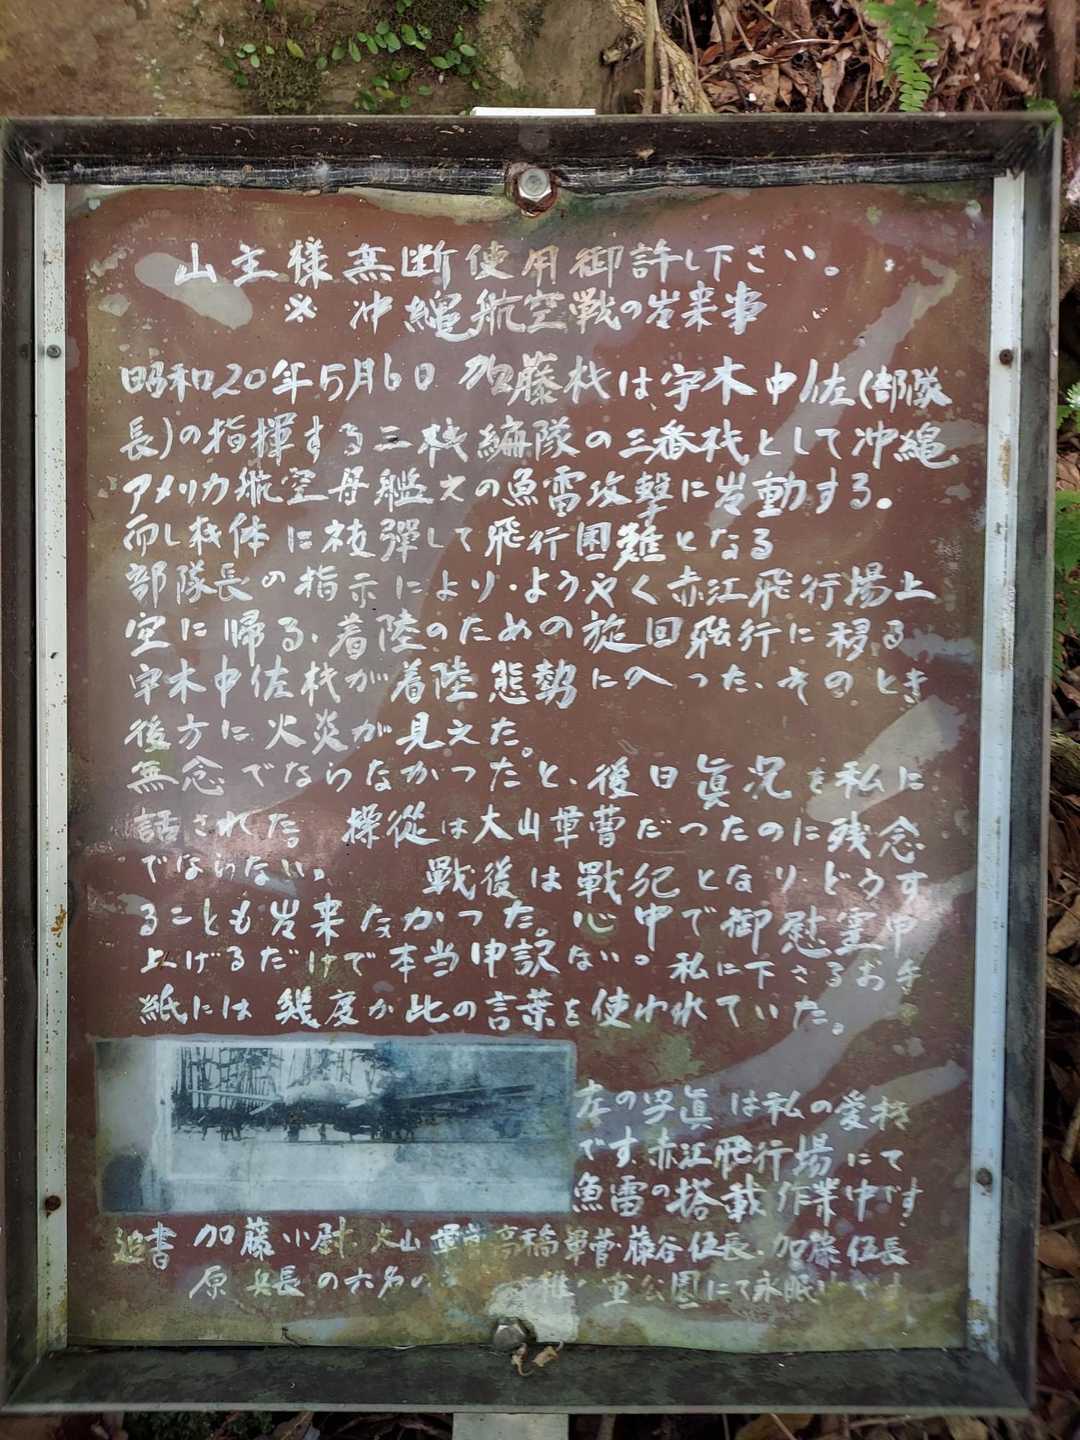 山主様無断使用御許し下さい。
※ 沖縄航空戦の出来事
昭和20年5月6日 加藤機は宇木中佐(部隊
長)の指揮する三機編隊の三番機として沖縄
アメリカ航空母艦えの魚雷攻撃に出動する。
而し機体に被弾して飛行困難となる
部隊長の指示により、ようやく赤江飛行場上
空に帰る、着陸のための旋回飛行に移る
宇木中佐機が着陸態勢に入った、そのとき
後方に火炎が見えた。
無念でならなかったと、後日眞況を私に
話された 操従は大山軍曹だったのに残念
でならない。 戦後は戦犯となりどうす
ることも出来なかった。心中で御慰霊申
上げるだけで本当申訳ない。私に下さるお手
紙には幾度か此の言葉を使われていた。
左の写眞は私の愛機
です 赤江飛行場にて
魚雷の搭載作業中です
追書 加藤小尉 大山軍曹 高橋軍曹 藤谷伍長、加藤伍長
原兵長の六名の 公園にて永眠